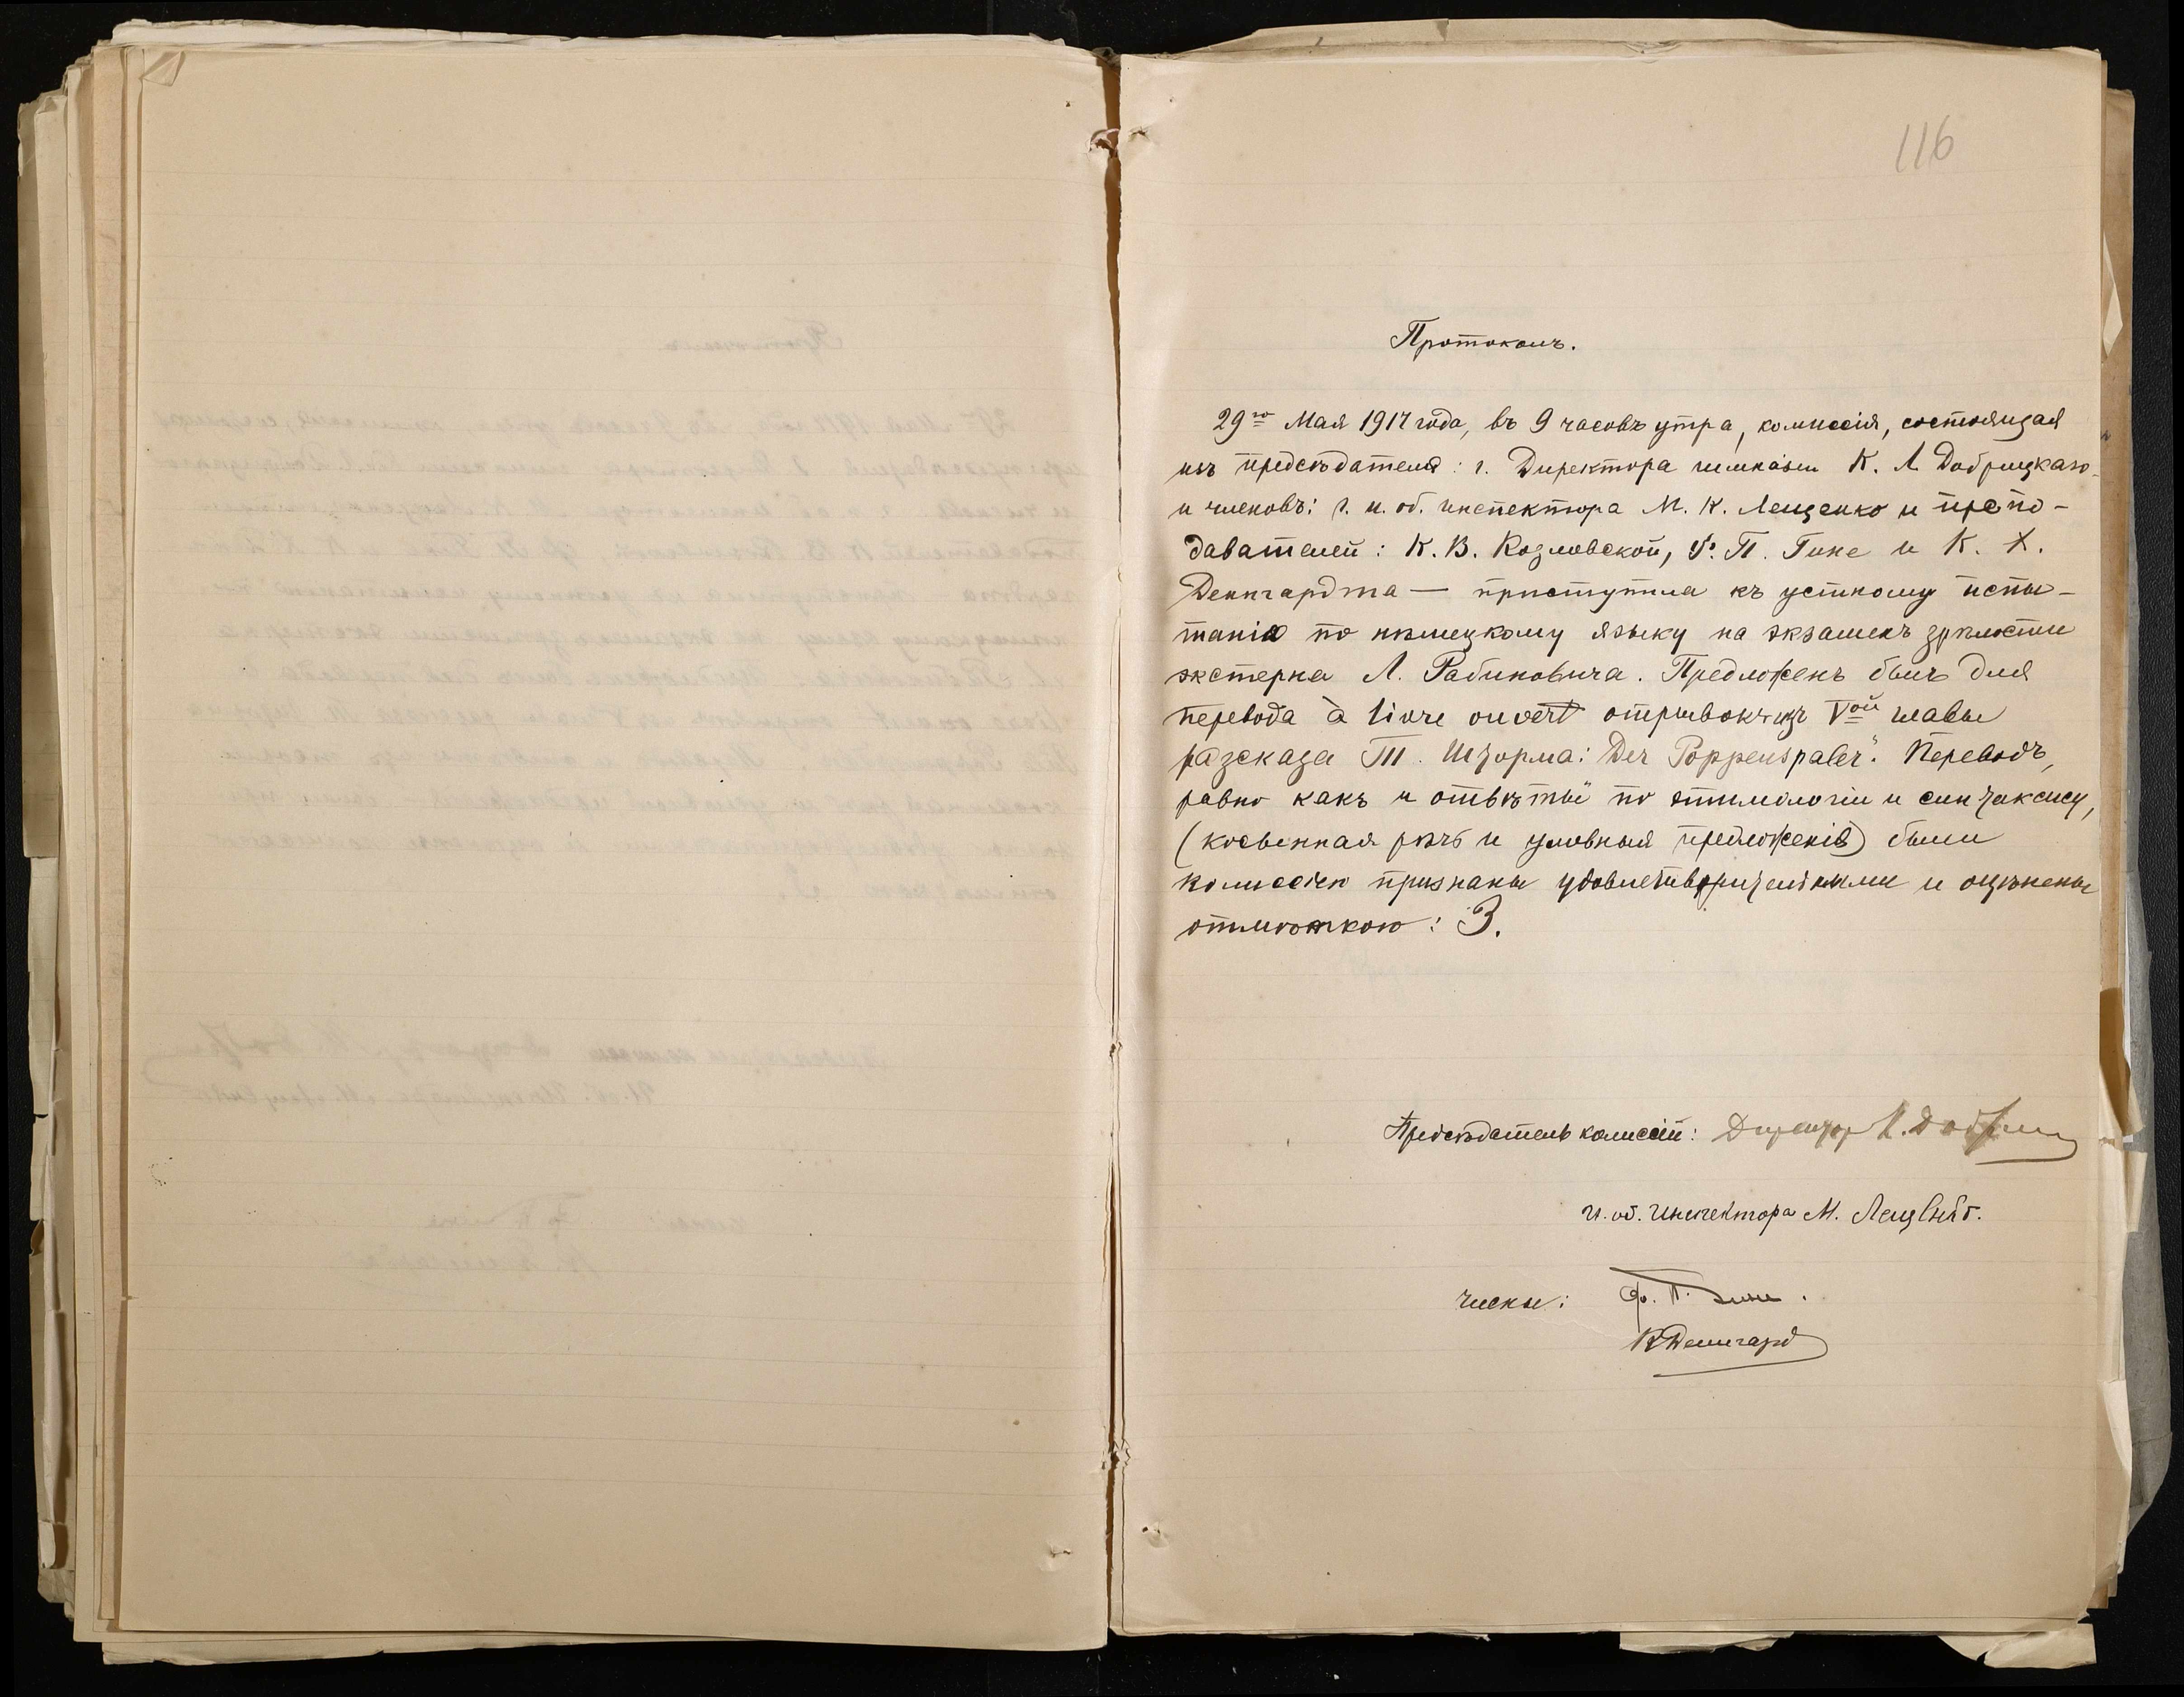 116
Протоколъ.
29го Мая 1917 года, въ 9 часовъ утра, комиссія, состоящая
изъ предсѣдателя: г. Директора гимназіи К. Л. Добрицкаго
и членовъ: г. и. об. инспектора М. К. Лещенко и препо-
давателей: К. В. Козловской, Ф. П. Гине и К. Х.
Денигардта — приступила къ устному испы-
танію по нѣмецкому языку на экзаменъ зрѣлости
экстерна Л. Рабиновича. Предложенъ былъ для
перевода à livre ouvert отрывокъ изъ Vой главы
разсказа Т. Шторма: Der Poppenspäler". Переводъ,
равно какъ и отвѣты по этимологіи и синтаксису,
(косвенная рѣчь и условныя предложенія) были
комиссіею признаны удовлетворительными и оцѣнены
отмѣткою: 3.
Предсѣдатель комиссіи: Директоръ К. Добриц
И. об. Инспектора М. Лещенко.
Члены: Ф. П. Гине.
К Денигардт